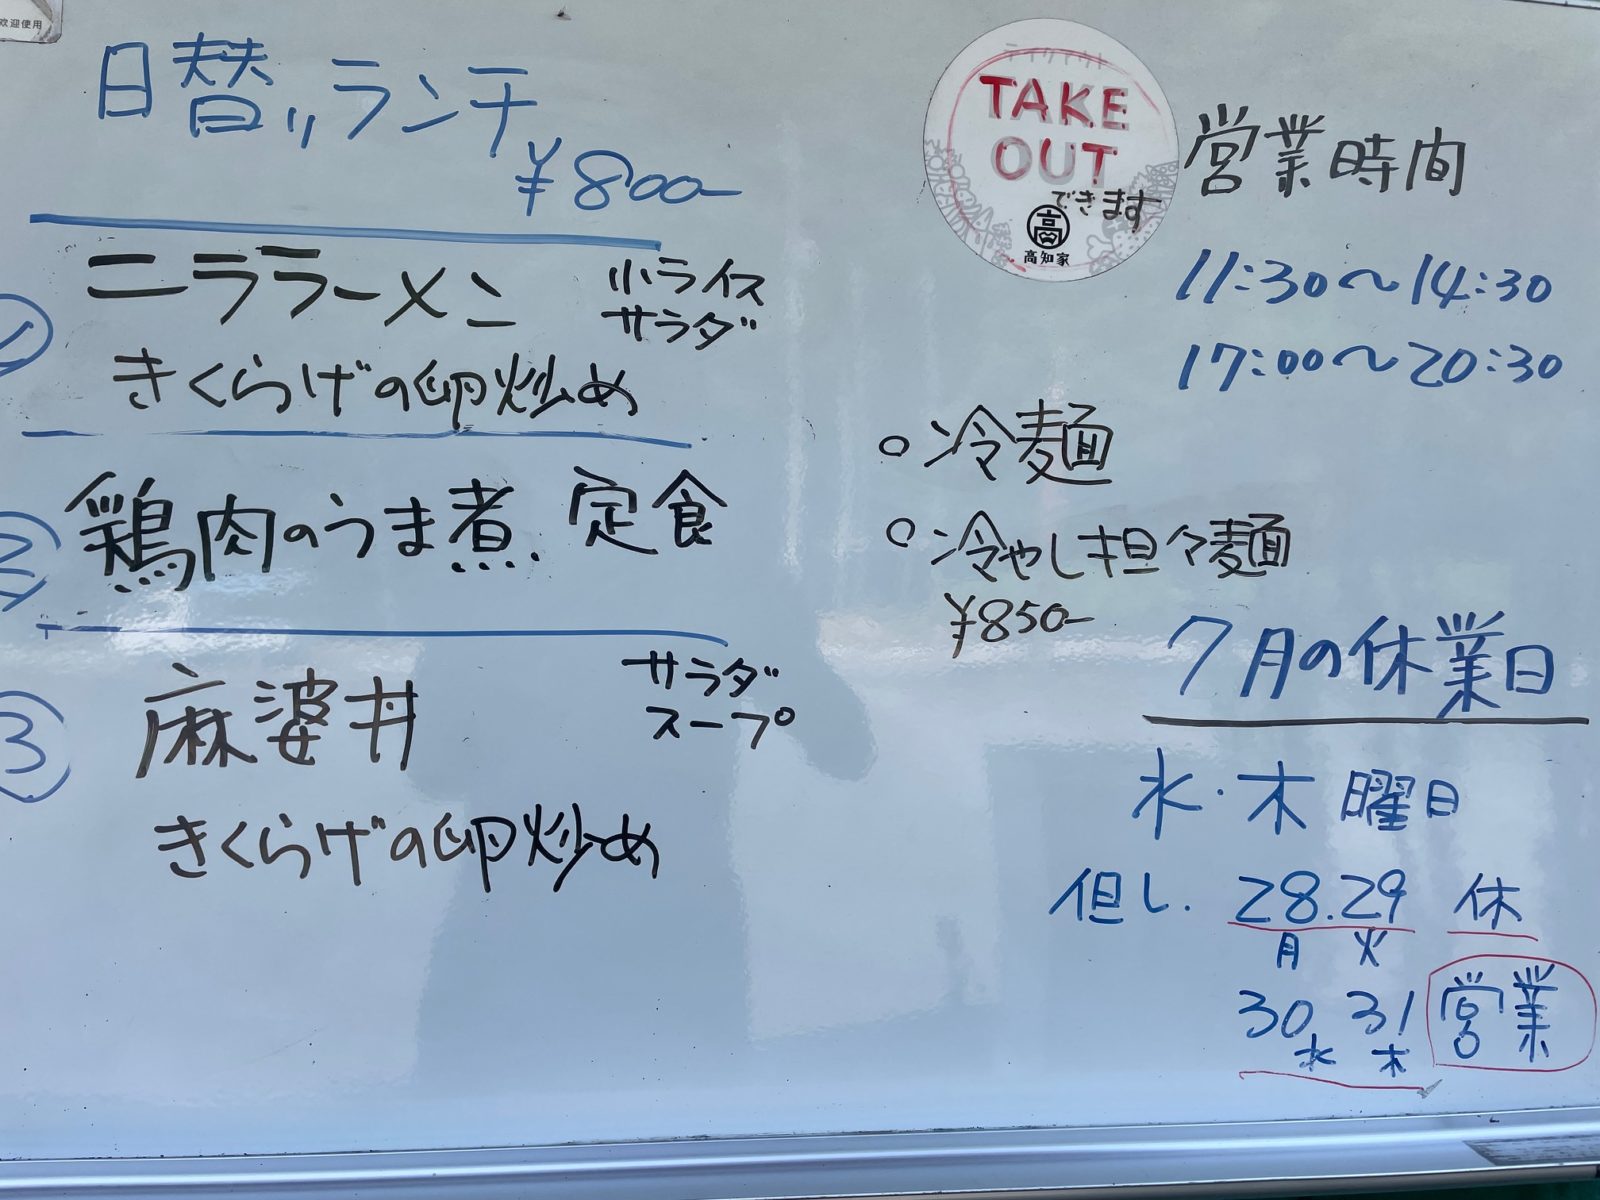 欢迎使用
日替りランチ
¥800-
① ニララーメン 小ライス
サラダ
きくらげの卵炒め
② 鶏肉のうま煮.定食
③ 麻婆丼 サラダ
スープ
きくらげの卵炒め
テイクアウト
TAKE
OUT
できます
高
高知家
営業時間
11:30〜14:30
17:00〜20:30
○冷麺
○冷やし担々麺
¥850-
7月の休業日
水・木曜日
但し. 28.29 休
月 火
30 31 営業
水 木